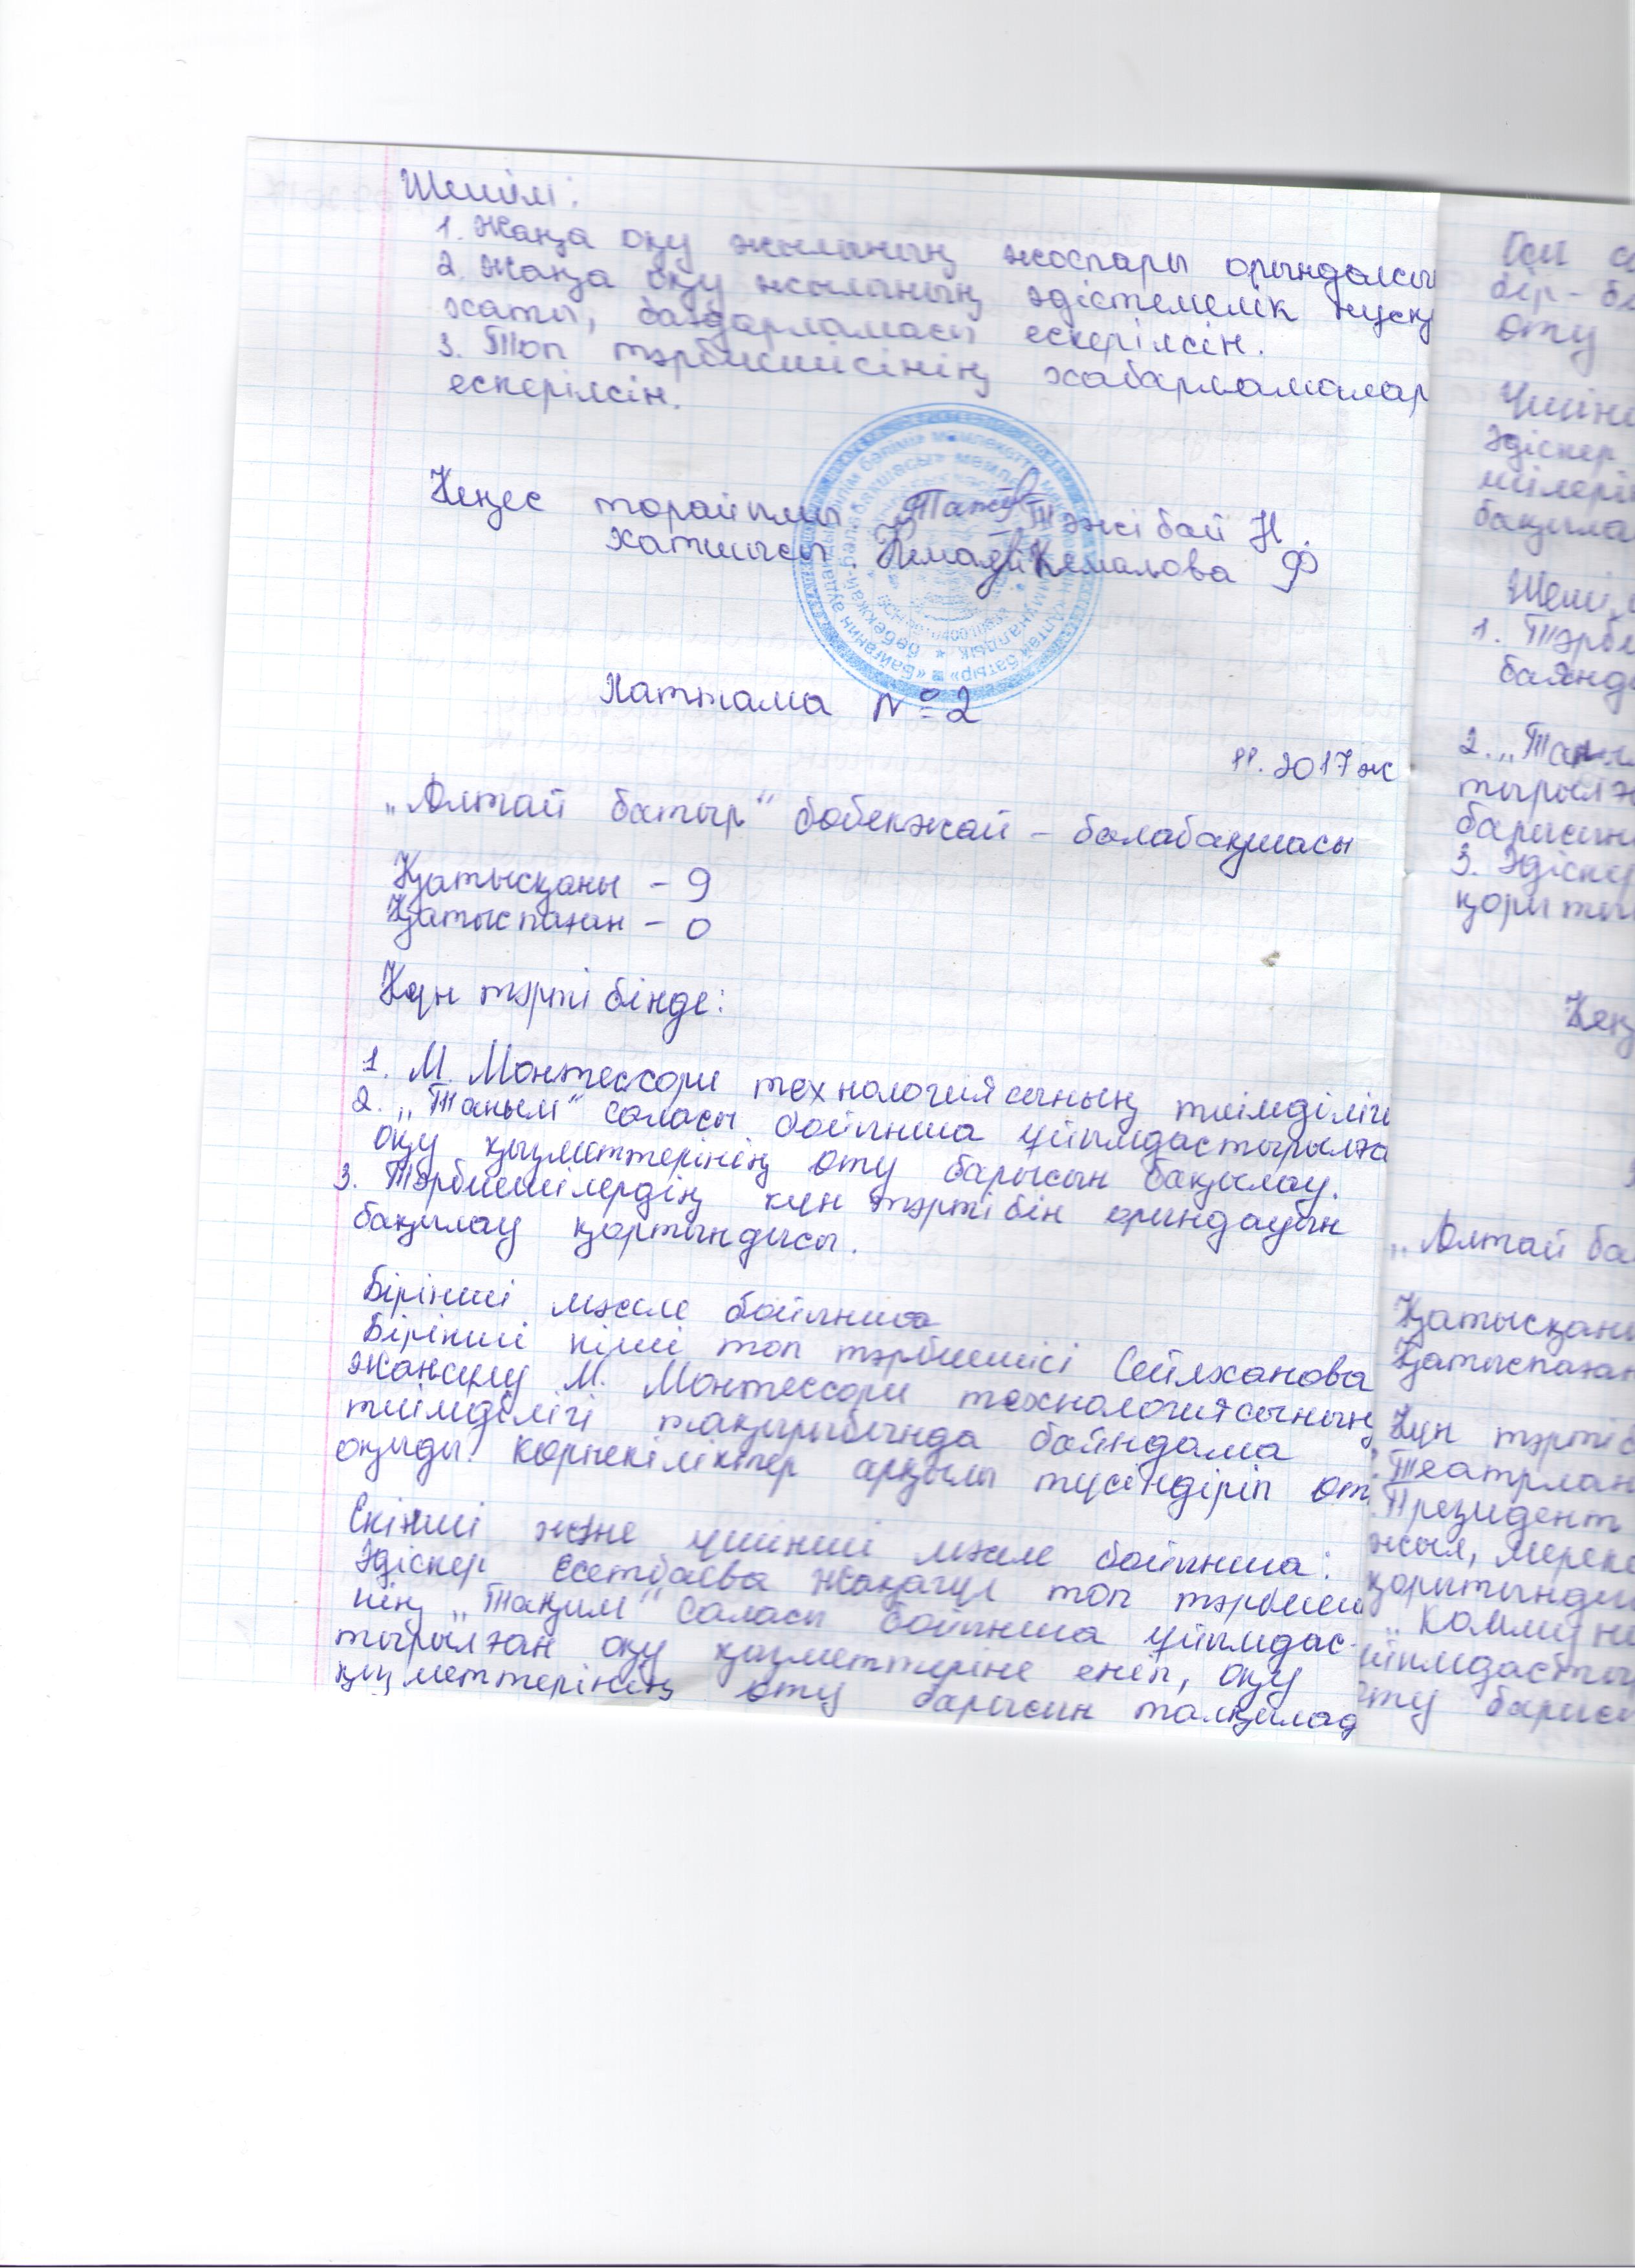 Шешім:
1. Жаңа оқу жылының жоспары орындалсы
2. Жаңа оқу жылының әдістемелік нұсқ
хаты, бағдарламасы ескерілсін.
3. Топ тәрбиешісінің хабарламалар
ескерілсін.
Кеңес төрайымы Тәжібай Н.
Хатшысы Кемалова Ф
Хаттама №2
11.2017ж
„Алтай батыр" бөбекжай - балабақшасы
Қатысқаны - 9
Қатыспаған - 0
Күн тәртібінде:
1. М. Монтессори технологиясының тиімділігі
2. „Таным" саласы бойынша ұйымдастырылға
оқу қызметтерінің өту барысын бақылау.
3. Тәрбиешілердің күн тәртібін орындауын
бақылау қортындысы.
Бірінші мәселе бойынша
Бірінші кіші топ тәрбиешісі Сейлханова
Жансұлу М. Монтессори технологиясының
тиімділігі тақырыбында баяндама
оқыды. Көрнекіліктер арқылы түсіндіріп өт
Екінші және үшінші мәселе бойынша:
Әдіскер Есетбаева Жаңагүл топ тәрбиеш
нің „Таным" саласы бойынша ұйымдас-
тырылған оқу қызметтеріне еніп, оқу
қызметтерінің өту барысын талқылад
бір-б
өту
Әдіскер
бақыла
Шешім
1. Тәрби
баянд
2. „Таны
тырылғ
барысын
3. Әдіскер
қорыты
Кең
„Алтай ба
Қатысқаны
Қатыспаған
Күн тәртіб
Театрлан
Президент
жыл, мереке
қорытынды
„Коммуни
йымдасты
өту барысы